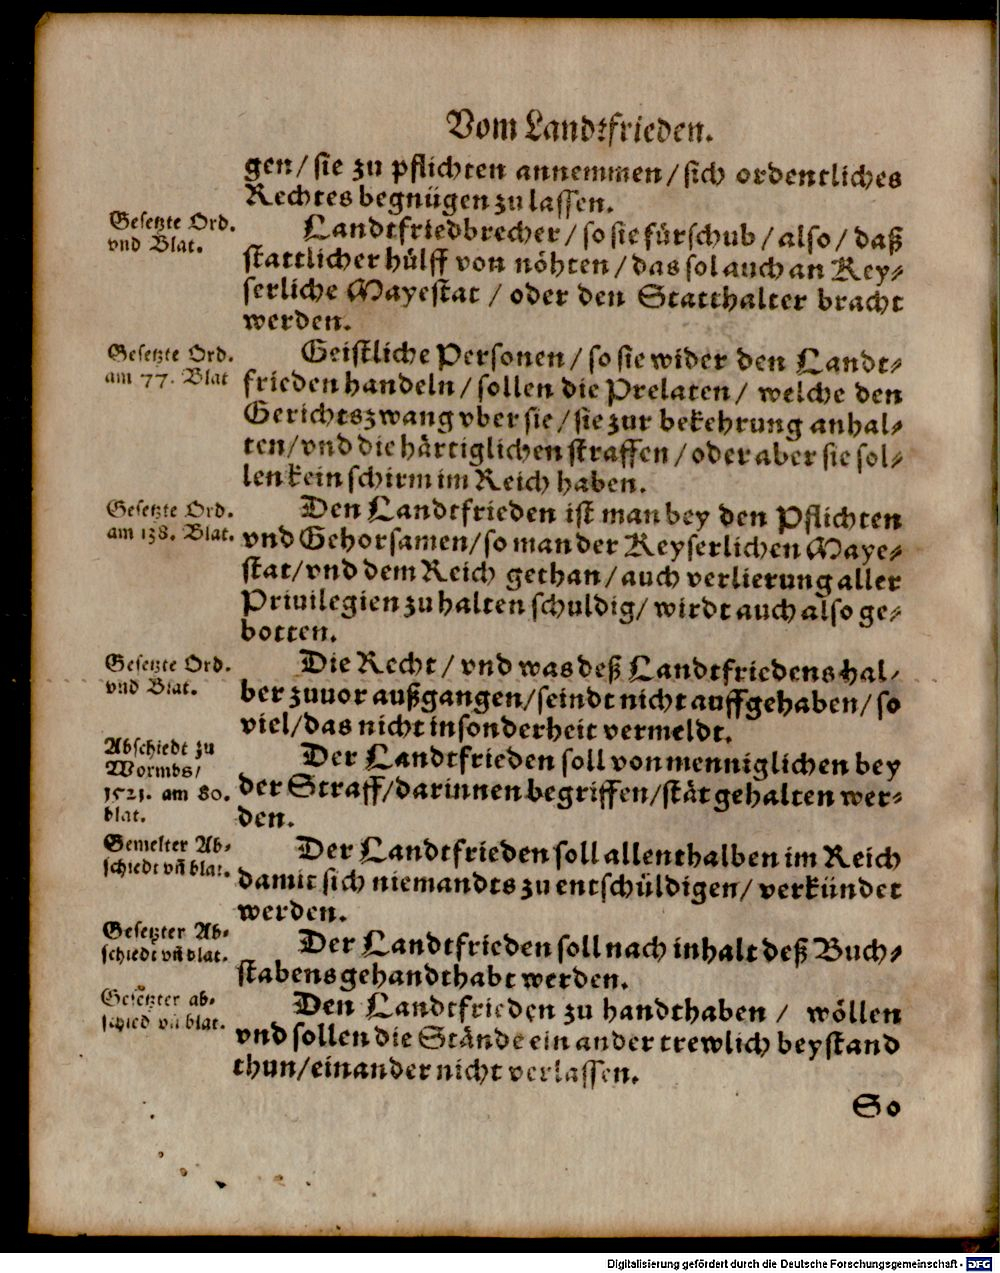 Vom Landtfrieden.
gen/ sie zu pflichten annemmen/ sich ordentliches
Rechtes begnügen zu lassen.
Gesetzte Ord.
vnd Blat.
Landtfriedbrecher/ so sie fürschub/ also/ daß
stattlicher hülff von nöhten/ das sol auch an Key-
serliche Mayestat/ oder den Statthalter bracht
werden.
Gesetzte Ord.
am 77. Blat
Geistliche Personen/ so sie wider den Landt-
frieden handeln/ sollen die Prelaten/ welche den
Gerichtszwang vber sie/ sie zur bekehrung anhal-
ten/ vnd die härtiglichen straffen/ oder aber sie sol-
len kein schirm im Reich haben.
Gesetzte Ord.
am 138. Blat.
Den Landtfrieden ist man bey den Pflichten
vnd Gehorsamen/ so man der Keyserlichen Maye-
stat/ vnd dem Reich gethan/ auch verlierung aller
Priuilegien zu halten schuldig/ wirdt auch also ge-
botten.
Gesetzte Ord.
vnd Blat.
Die Recht/ vnd was deß Landtfriedens hal-
ber zuuor außgangen/ seindt nicht auffgehaben/ so
viel/ das nicht insonderheit vermeldt.
Abschiedt zu
Wormbs/
1521. am 80.
blat.
Der Landtfrieden soll von menniglichen bey
der Straff/ darinnen begriffen/ stät gehalten wer-
den.
Gemelter Ab-
schiedt vñ blat.
Der Landtfrieden soll allenthalben im Reich
damit sich niemandts zu entschüldigen/ verkündet
werden.
Gesetzter Ab-
schiedt vñ blat.
Der Landtfrieden soll nach inhalt deß Buch-
stabens gehandthabt werden.
Gesetzter ab-
schied vñ blat.
Den Landtfrieden zu handthaben/ wöllen
vnd sollen die Stände ein ander trewlich beystand
thun/ einander nicht verlassen.
So
Digitalisierung gefördert durch die Deutsche Forschungsgemeinschaft - DFG